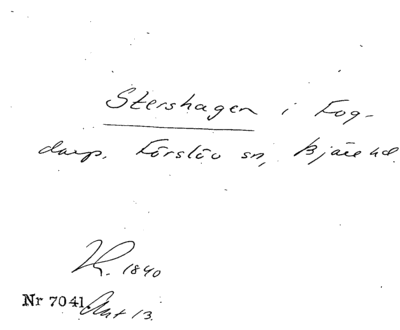 Stershagen i Fog-
darp. Förslöv sn, Bjäre hd.
1840
Nr 7041. Akt 13.